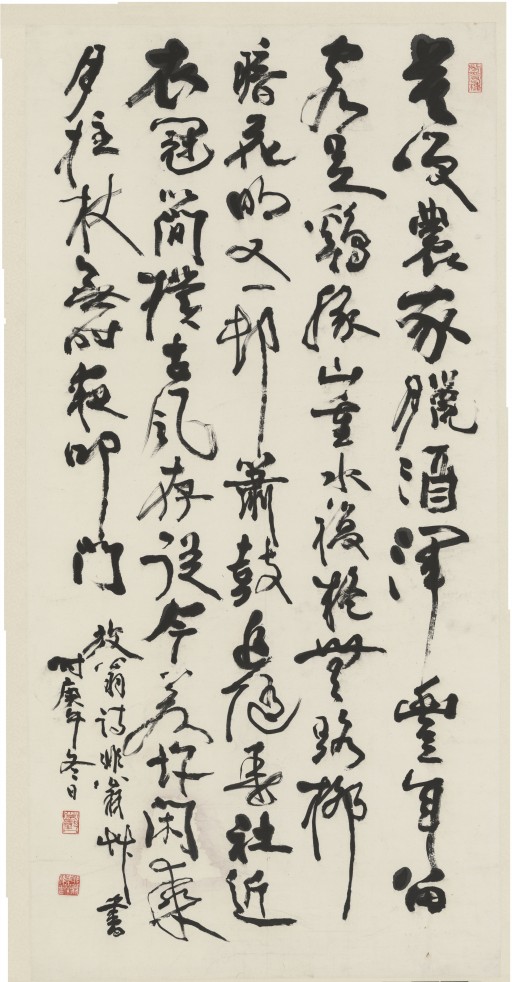 莫笑農家臘酒渾豐年留
客足鷄豚山重水複疑無路柳
暗花明又一邨簫鼓追隨春社近
衣冠簡樸古風存從今若許閑乘
月拄杖無時夜叩門
放翁詩艸書
時庚午冬日